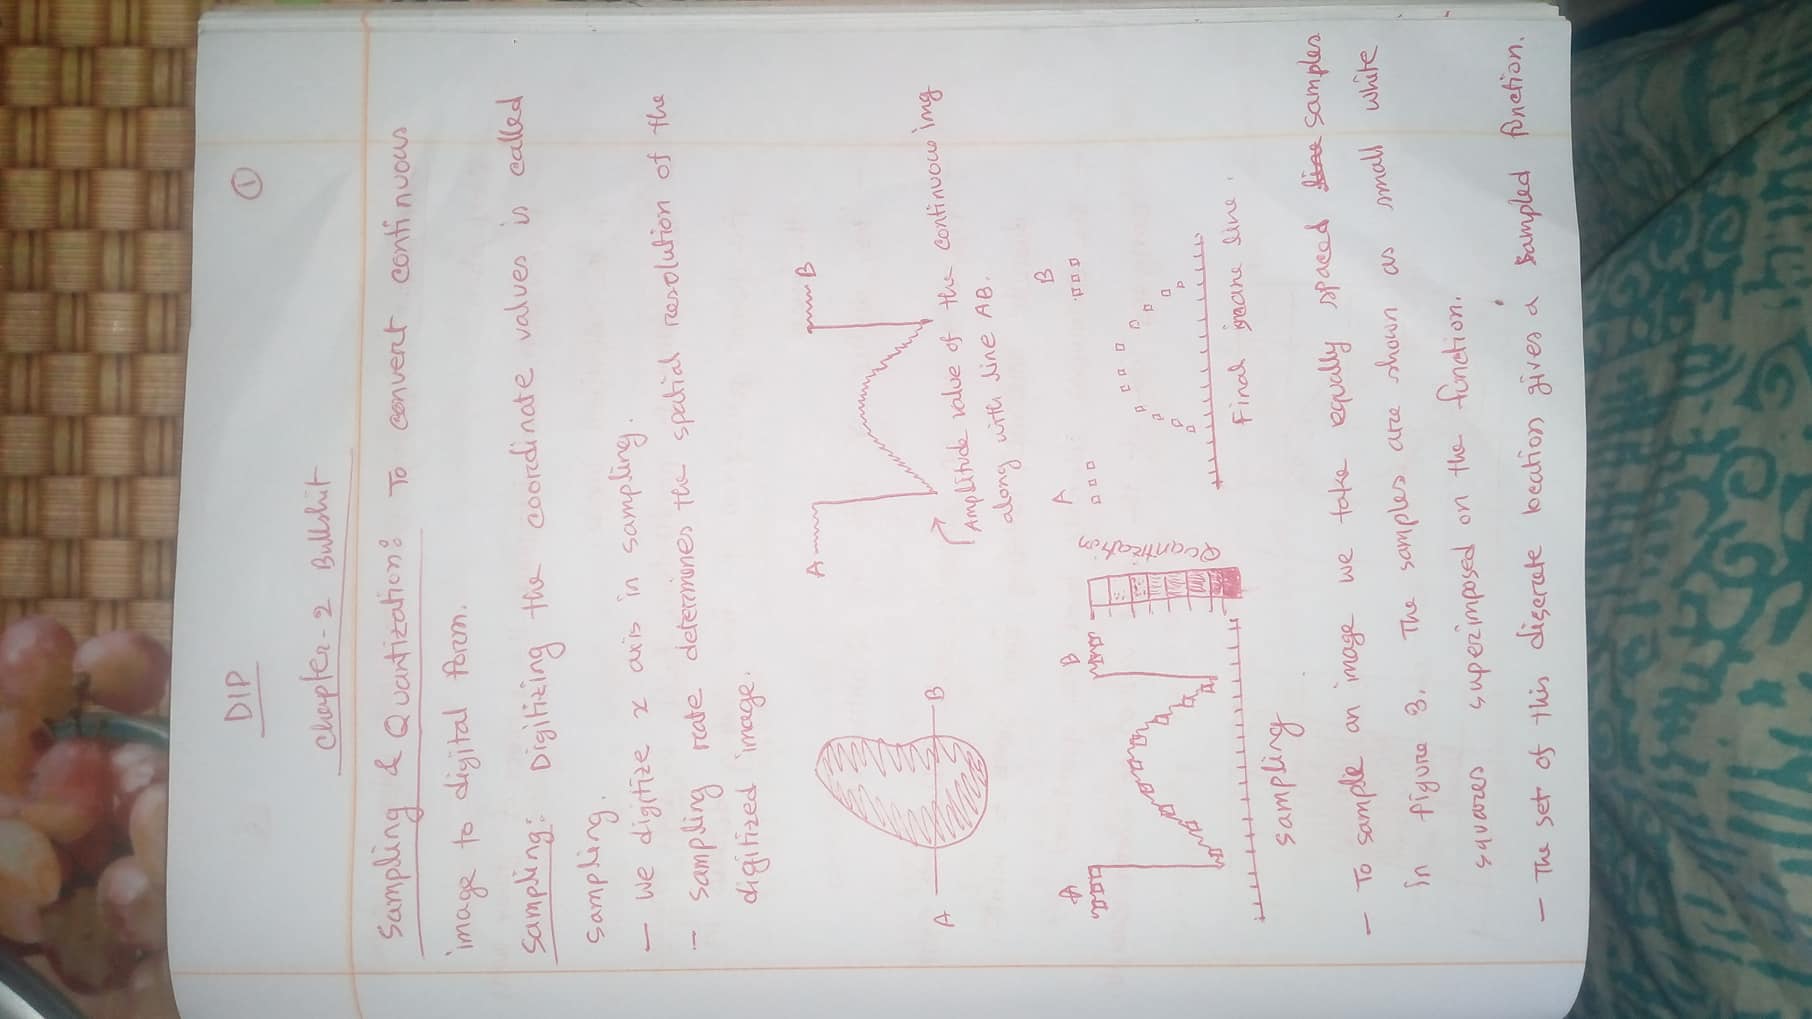 DIP
①
Chapter-2 Bullshit
Sampling & Quantization: To convert continuous
image to digital form.
Sampling: Digitizing the coordinate values is called
sampling.
- We digitize x axis in sampling.
- sampling rate determines the spatial resolution of the
digitized image.
A B
A B
Amplitude value of the continuous img
along with line AB.
A B
Quantization
sampling
A B
Final line.
- To sample an image we take equally spaced samples
in figure 3. The samples are shown as small white
squares superimposed on the function.
- The set of this discrate locations gives a sampled function.